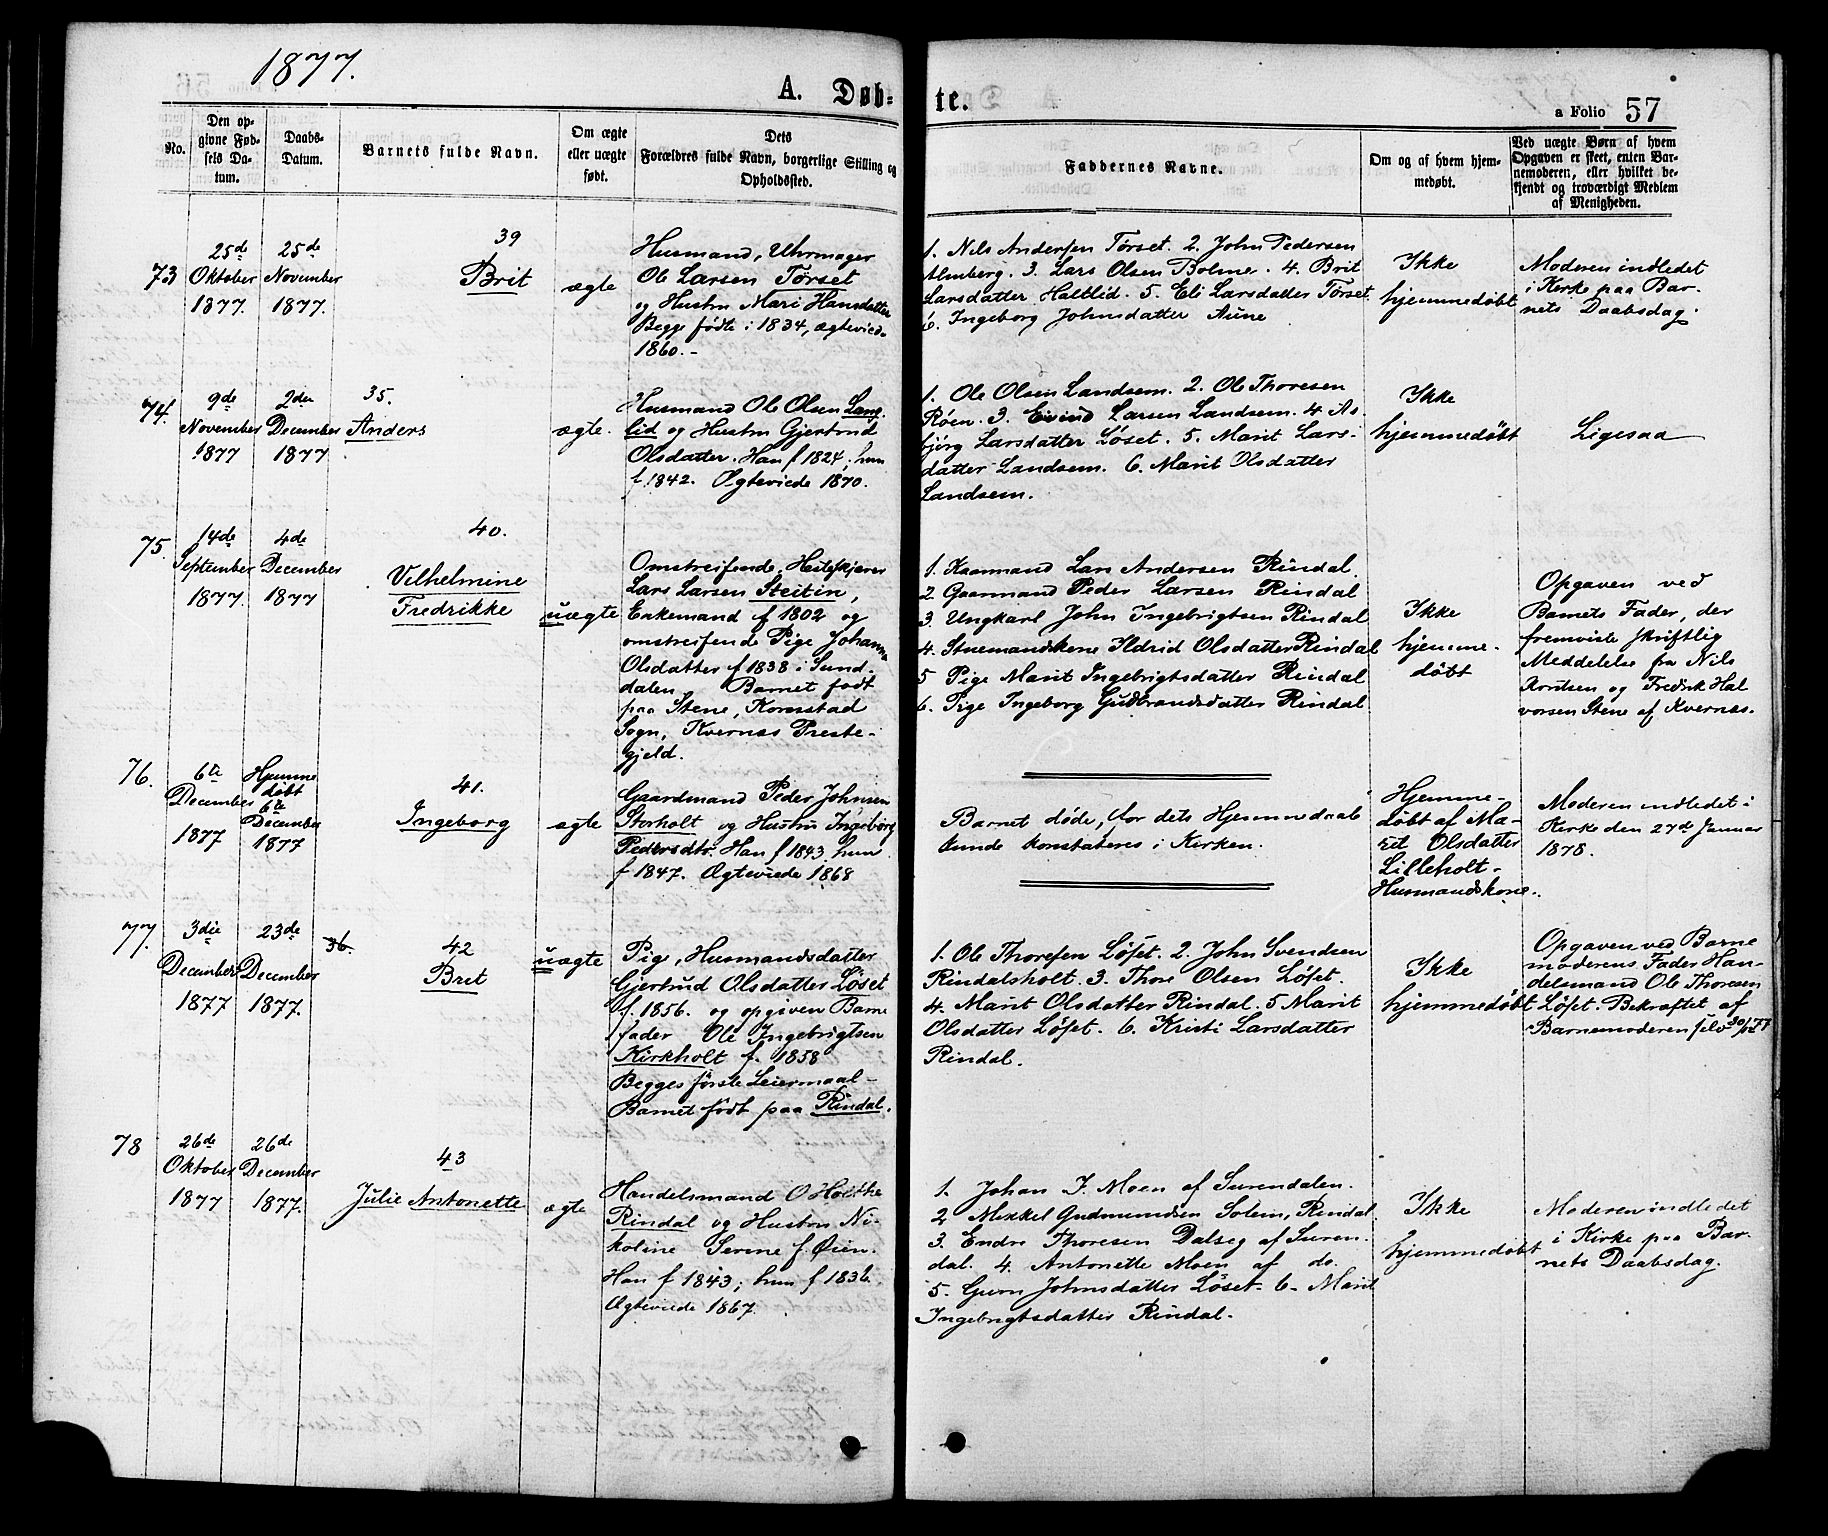 1877.
A. Døb-
te.
a Folio 57
No.
Den op-
givne Fød-
sels Da-
tum.
Daabs-
Datum.
Barnets fulde Navn.
Om ægte
eller uægte
født.
Dets
Forældres fulde Navn, borgerlige Stilling og
Opholdssted.
Faddernes Navne.
Om og af hvem hjem-
medøbt.
Ved uægte Børn af hvem
Opgaven er skeet, enten Bar-
nemoderen, eller hvilket be-
kjendt og troværdigt Medlem
af Menigheden.
73
25de
Oktober
1877.
25de
November
1877.
39
Brit
ægte
Husmand, Uhrmager
Ole Larsen Tørset
og Hustru Mari Hansdatter
Begge fødte i 1834, ægteviede
1860.-
1. Nils Andersen Tørset. 2. John Pedersen
Almberg. 3. Lars Olsen Bolme. 4. Brit
Larsdatter Haltlid. 5. Eli Larsdatter Tørset
6. Ingeborg Johnsdatter Aune
Ikke
hjemmedøbt
Moderen indledet
i Kirke paa Bar-
nets Daabsdag.
74.
9de
November
1877
2den
December
1877
35.
Anders
ægte.
Husmand Ole Olsen Lang-
lid og Hustru Gjertrud
Olsdatter. Han f 1824; hun
f. 1842. Ægteviede 1870.
1. Ole Olsen Landsem. 2. Ole Thoresen
Røen. 3. Eivind Larsen Landsem. 4 As-
bjørg Larsdatter Løset. 5. Marit Lars-
datter Landsem. 6. Marit Olsdatter
Landsem.
Ikke
hjemmedøbt
Ligesaa
75.
14de
September
1877.
4de
December
1877
40.
Vilhelmine
Fredrikke
uægte
Omstreifende, Hesteskjærer
Lars Larsen Steitin,
Enkemand f 1802 og
omstreifende Pige Johanna
Olsdatter f 1838 i Sund-
dalen. Barnet født
paa Stene, Kornstad
Sogn, Kvernæs Preste-
gjeld.
1. Kaarmand Lars Andersen Rindal.
2. Gaarmand Peder Larsen Rindal
3. Ungkarl John Ingebrigtsen Rindal
4. Stuemandskone Ildrid Olsdatter Rindal
5 Pige Marit Ingebrigtsdatter Rindal
6. Pige Ingeborg Gudbrandsdatter Rindal
Ikke
hjemme-
døbt
Opgaven ved
Barnets Fader, der
fremviste skriftlig
Meddelelse fra Nils
Arntsen og Fredrik Hal
vorsen Stene af Kvernæs.
76.
6te
December
1877
Hjemme
døbt
6te
December
1877
41.
Ingeborg
ægte
Gaardmand Peder Johnsen
Storholt og Hustru Ingeborg
Pedersdtr. Han f 1843 hun
f 1847. Ægteviede 1868
Barnet døde, før dets Hjemmedaab
kunde konstateres i Kirken.
Hjemme-
døbt af Ma-
rit Olsdatter
Lilleholt-
Husmandskone.
Moderen indledet i
Kirke den 27de Januar
1878.
77.
3die
December
1877
23de
December
1877.
36.
42
Brit
uægte
Pige, Husmandsdatter
Gjertrud Olsdatter Løset
f. 1856. og opgiven Barne
fader Ole Ingebrigtsen
Kirkholt f. 1858
Begges første Leiermaal-
Barnet født paa Rindal.
1. Ole Thoresen Løset. 2. John Svendsen
Rindalsholt. 3. Thore Olsen Løset.
4. Marit Olsdatter Rindal. 5 Marit
Olsdatter Løset. 6. Kristi Larsdatter
Rindal.
Ikke
hjemmedøbt
Opgaven ved Barne
moderens Fader Han-
delsmand Ole Thoresen
Løset. Bekræftet af
Barnemoderen selv 30/12 77
78
26de
Oktober
1877
26de
December
1877.
43
Julie Antonette
ægte
Handelsmand O Holthe
Rindal og Hustru Ni-
koline Serine f. Øien.
Han f 1843; hun f 1836.
Ægteviede 1867
1. Johan I. Moen af Surendalen.
2 Mikkel Gudmundsen Solem, Rindal
3. Endre Thoresen Dalseg af Suren-
dal. 4. Antonette Moen af do.
5. Guru Johnsdatter Løset. 6. Marit
Ingebrigtsdatter Rindal.
Ikke
hjemmedøbt
Moderen indledet
i Kirke paa Bar-
nets Daabsdag.